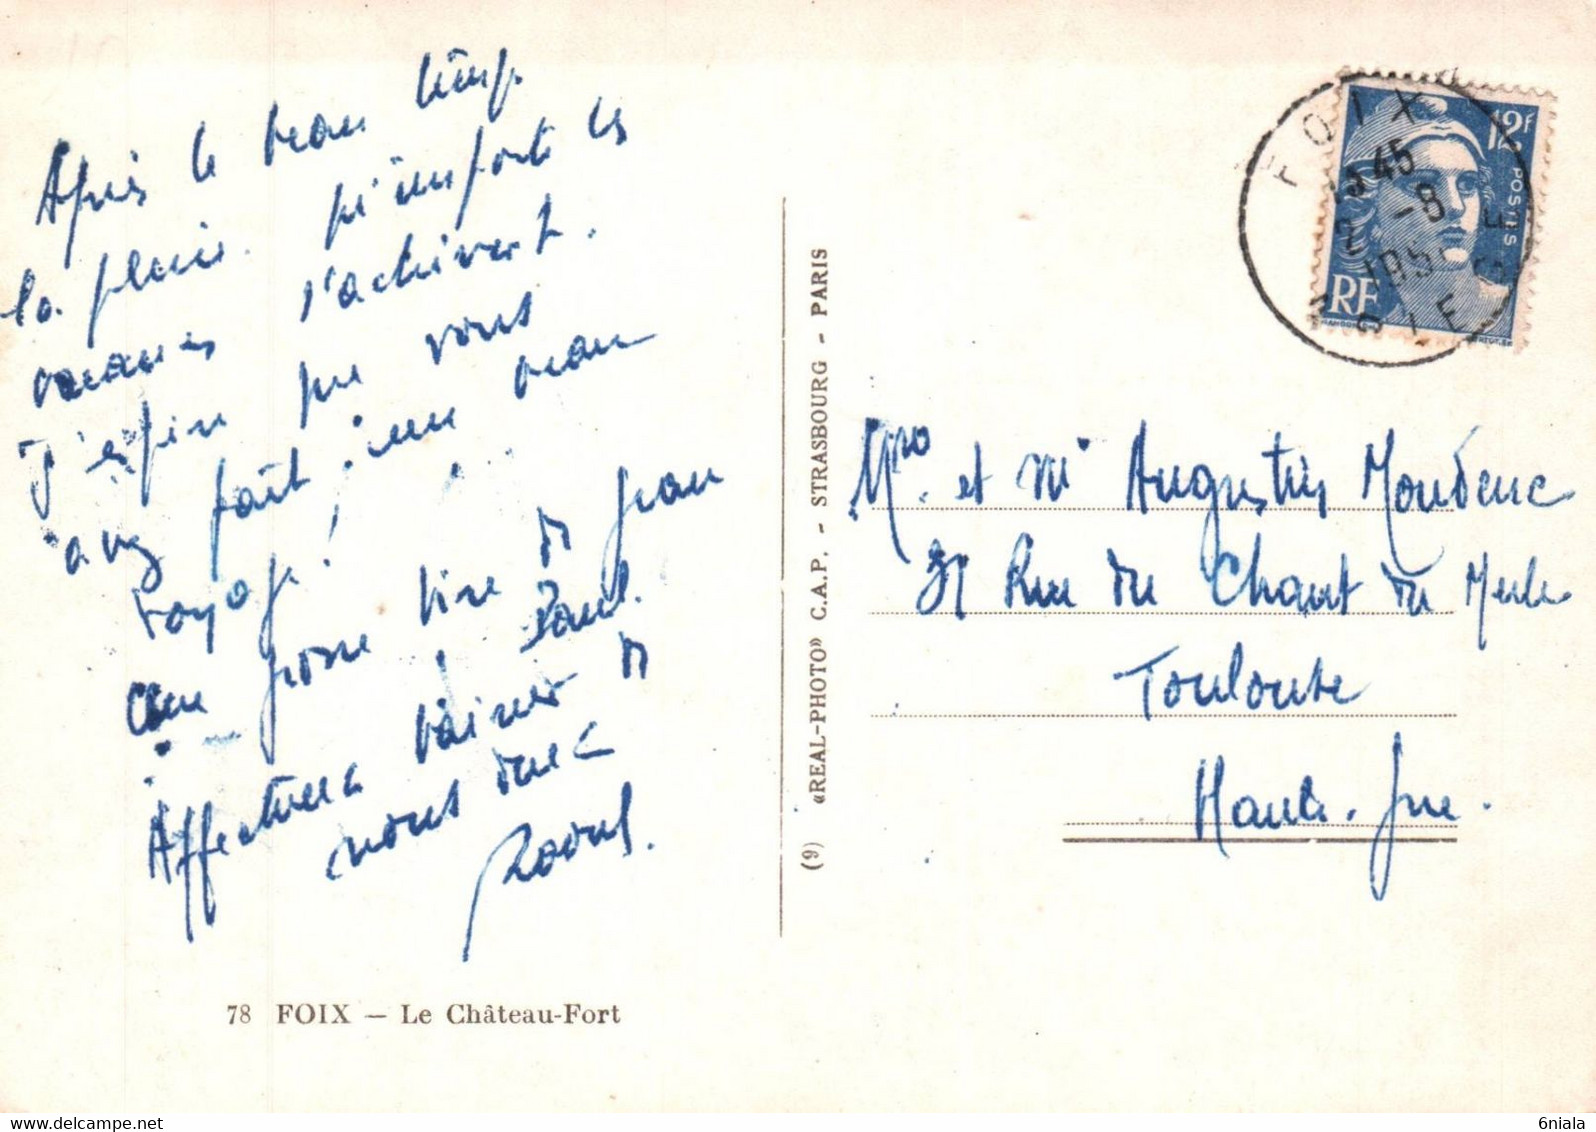 Après le beau temps
la pluie. qu'importe les
vacances s'achèvent.
J'espère que vous
avez fait un beau
voyage !
Une grosse bise de Jean
Paul.
Affectueux baisers de
nous deux
Raoul.
78 FOIX — Le Château-Fort
(9) «REAL-PHOTO» C.A.P. - STRASBOURG - PARIS
FOIX
45
-8
ARIEGE
12F
POSTES
RF
Mr. et Me Augustin Moudenc
31 Rue du Chant du Merle
Toulouse
Haute. Gne.
6niala